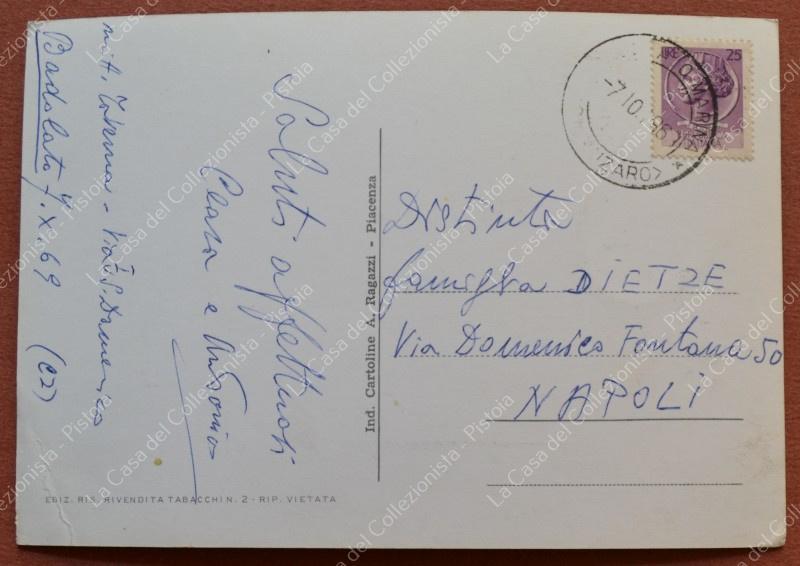 mitt. - Via S. Domenico
Badolato 7.X.69 (CZ)
Saluti affettuosi
e Antonio
Ind. Cartoline A. Ragazzi - Piacenza
EDIZ. RIS. RIVENDITA TABACCHI N. 2 - RIP. VIETATA
LIRE 25
O MARINA
-7.10.196
ZARO
Distinta
famiglia DIETZE
Via Domenico Fontana 50
NAPOLI
La Casa del Collezionista - Pistoia